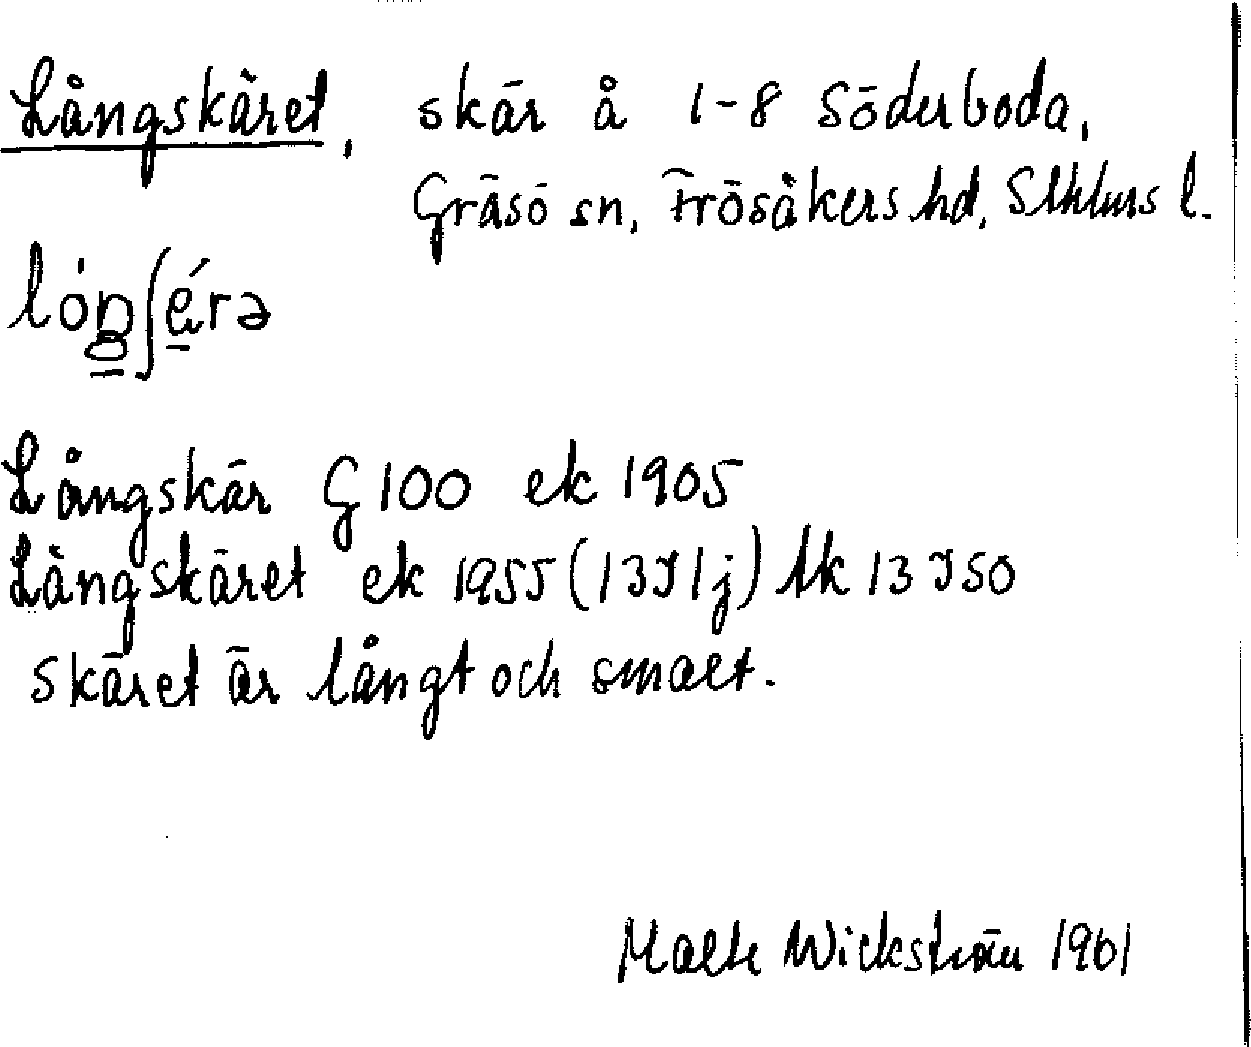 Långskäret, skär å 1-8 Söderboda,
Gräsö sn, Frösåkers hd, Sthlms l.
Långskär G 100 ek 1905
Långskäret ek 1955 (13I1j) tk 13I50
skäret är långt och smalt.
Malte Wickström 1961